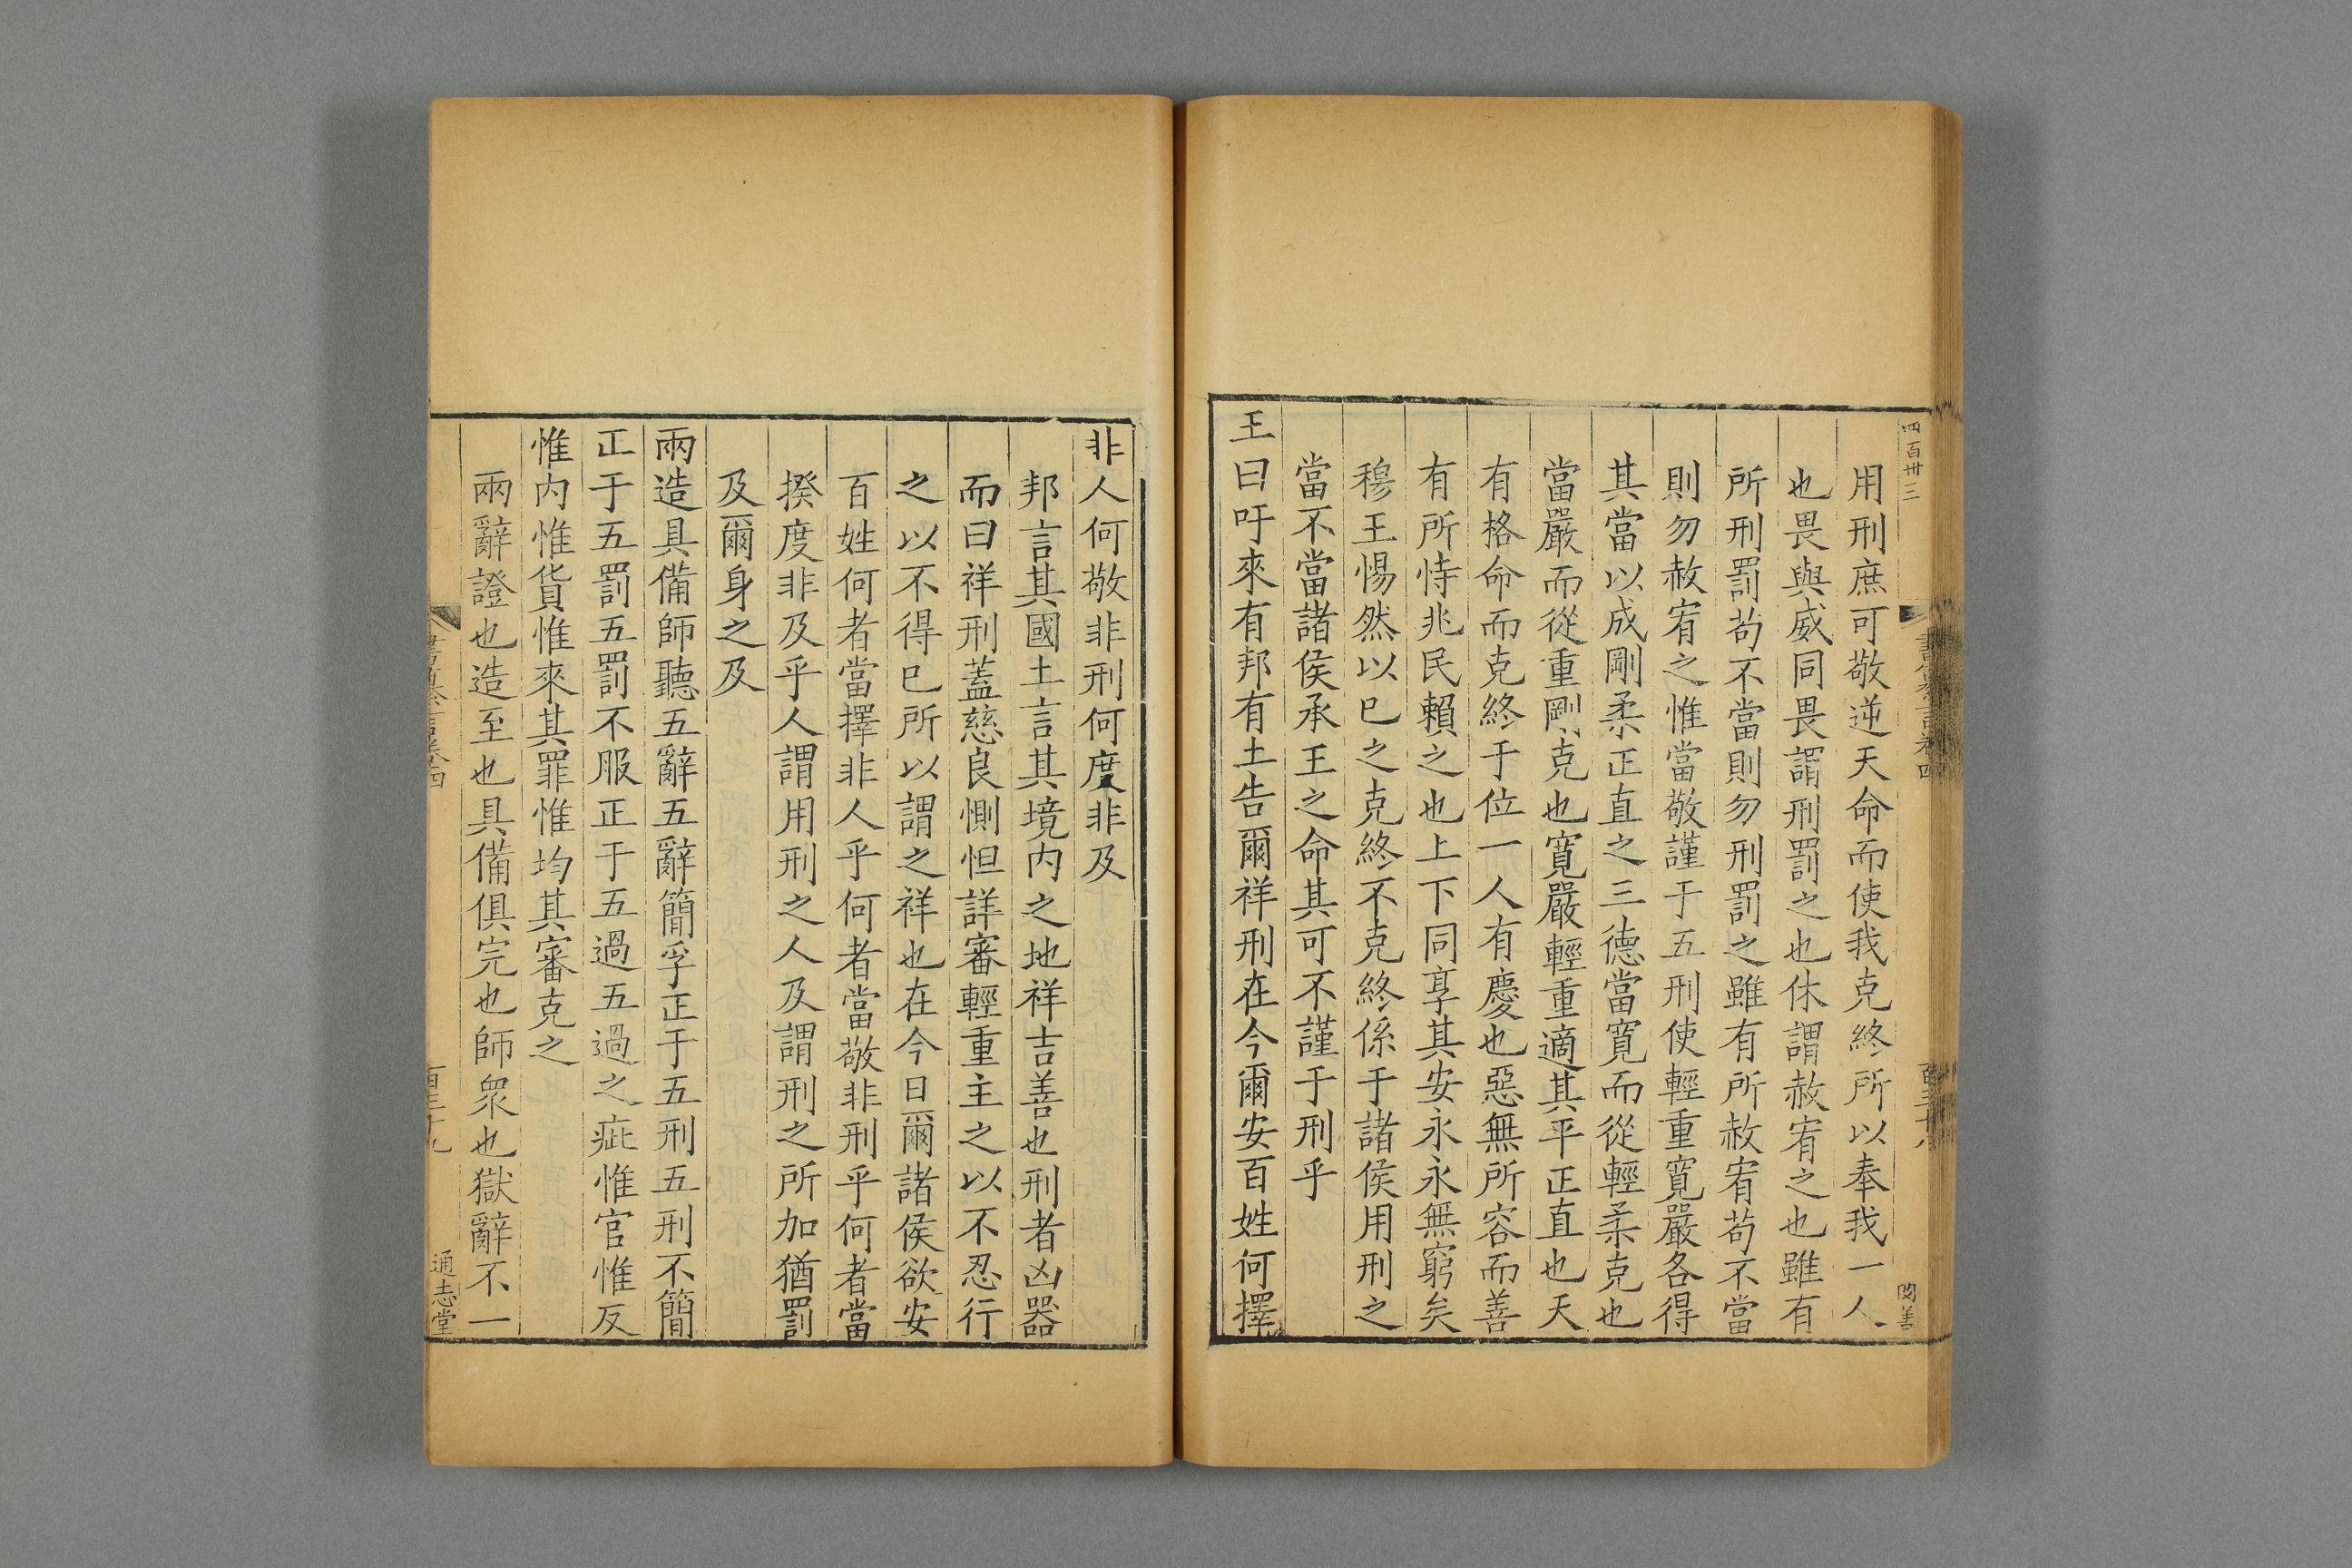 四百卅三
用刑庶可敬逆天命而使我克終所以奉我一人
也畏與威同畏謂刑罰之也休謂赦宥之也雖有
所刑罰苟不當則勿刑罰之雖有所赦宥苟不當
則勿赦宥之惟當敬謹于五刑使輕重寬嚴各得
其當以成剛柔正直之三德當寬而從輕柔克也
當嚴而從重剛克也寬嚴輕重適其平正直也天
有格命而克終于位一人有慶也惡無所容而善
有所恃兆民賴之也上下同享其安永永無窮矣
穆王惕然以巳之克終不克終係于諸侯用刑之
當不當諸侯承王之命其可不謹于刑乎
王曰吁來有邦有土告爾祥刑在今爾安百姓何擇
非人何敬非刑何度非及
邦言其國土言其境内之地祥吉善也刑者凶器
而曰祥刑蓋慈良惻怛詳審輕重主之以不忍行
之以不得巳所以謂之祥也在今日爾諸侯欲安
百姓何者當擇非人乎何者當敬非刑乎何者當
揆度非及乎人謂用刑之人及謂刑之所加猶罰
及爾身之及
兩造具備師聽五辭五辭簡孚正于五刑五刑不簡
正于五罰五罰不服正于五過五過之疵惟官惟反
惟内惟貨惟來其罪惟均其審克之
兩辭證也造至也具備俱完也師眾也獄辭不一
通志堂